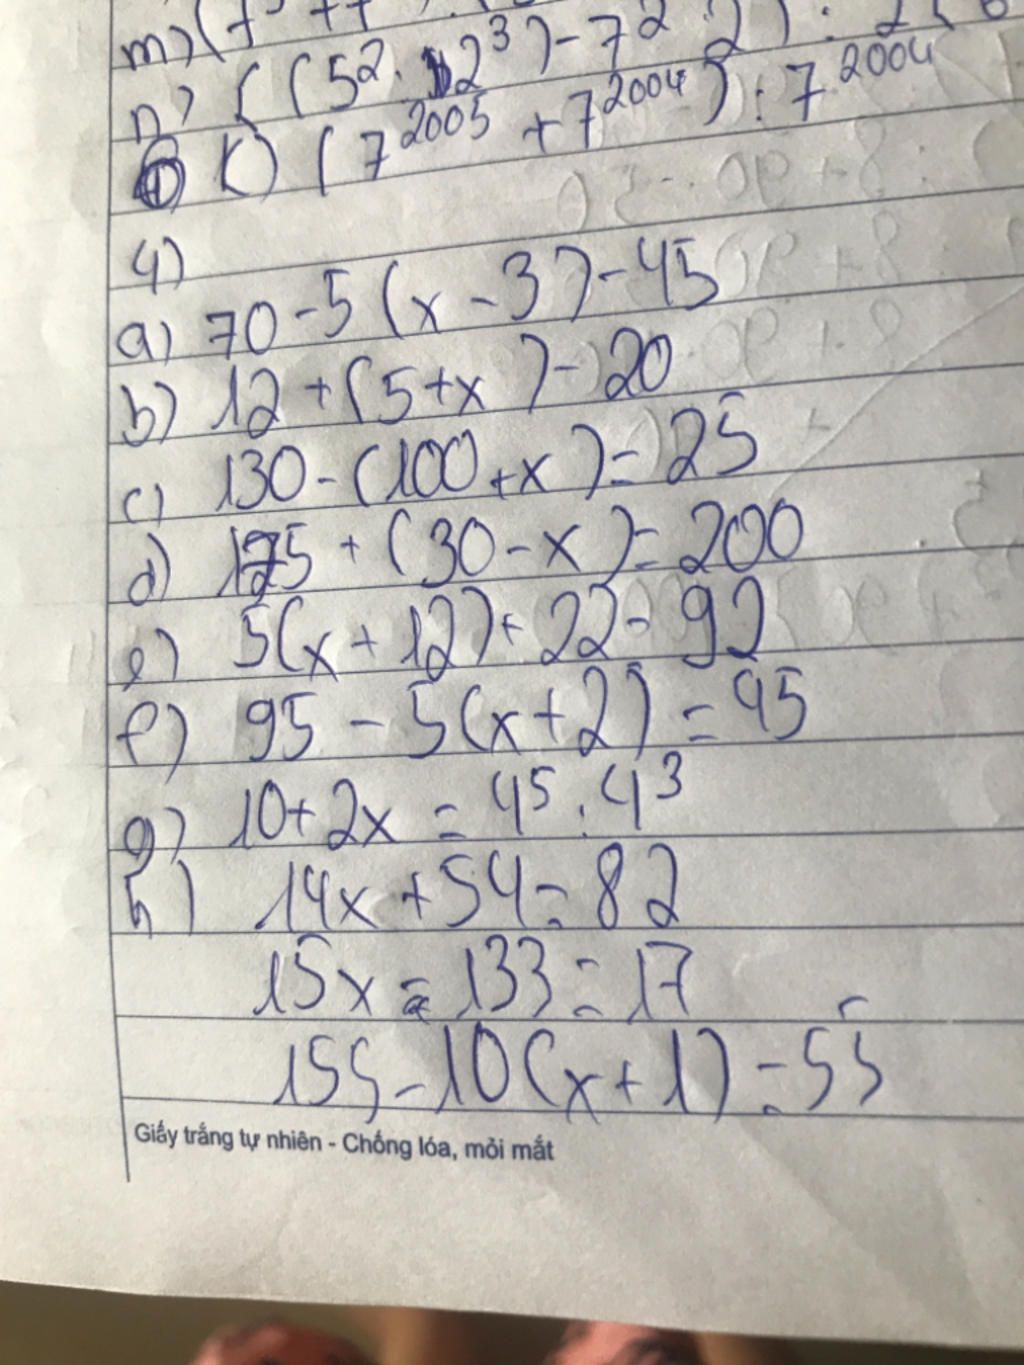 m) (7
n) { (5². 2³) - 7² 2) : 2
k) (7²⁰⁰⁵ + 7²⁰⁰⁴) : 7²⁰⁰⁴
4)
a) 70 - 5 (x - 3) - 45
b) 12 + (5 + x ) - 20
c) 130 - (100 + x ) = 25
d) 175 + (30 - x ) = 200
e) 5(x + 12) + 22 = 92
f) 95 - 5(x + 2) = 45
g) 10 + 2x = 4⁵ : 4³
h) 14x + 54 = 82
15x = 133 = 17
155 - 10 (x + 1) = 55
Giấy trắng tự nhiên - Chống lóa, mỏi mắt